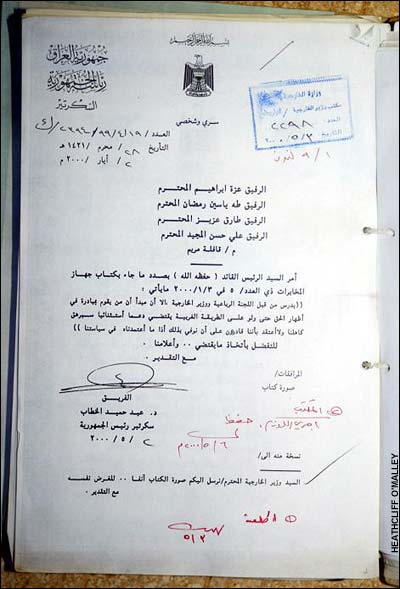 بسم الله الرحمن الرحيم
جمهورية العراق
رئاسة الجمهورية
السكرتير
سري وشخصي
العدد/
التأريخ/ ٢٨ محرم /١٤٢١هـ
٢ / أيار /٢٠٠٠م
وزارة الخارجية
مكتب وزير الخارجية
العدد: ٢٢٩٨
التأريخ: ٢٠٠٠/٥/٣
الرفيق عزة ابراهيم المحترم
الرفيق طه ياسين رمضان المحترم
الرفيق طارق عزيز المحترم
الرفيق علي حسن المجيد المحترم
م / قافلة مريم
أمر السيد الرئيس القائد ( حفظه الله ) بصدد ما جاء بكتاب جهاز
المخابرات ذي العدد/ ٥ في ٢٠٠٠/١/٣ مايأتي :
((يدرس من قبل اللجنة الرباعية ووزير الخارجية ،الا أن مبدأ أن من يقوم بمبادرة في
أظهار الحق حتى ولو على الطريقة الغربية يقتضي دعما أستثنائيا سيرهق
كاهلنا ولاأعتقد بأننا قادرون على أن نوفي بذلك أذا ما أعتمدناه في سياستنا ))
للتفضل بأتخاذ مايقتضي ٠٠ وأعلامنا ٠
مع التقدير ٠
المرافقات/
صورة كتاب
الفريق
د. عبد حميد الخطاب
سكرتير رئيس الجمهورية
٢ / ٥ / ٢٠٠٠
نسخة منه الى/
السيد وزير الخارجية المحترم/نرسل اليكم صورة الكتاب آنفا ٠٠ للغرض نفسه
مع التقدير ٠
HEATHCLIFF O'MALLEY